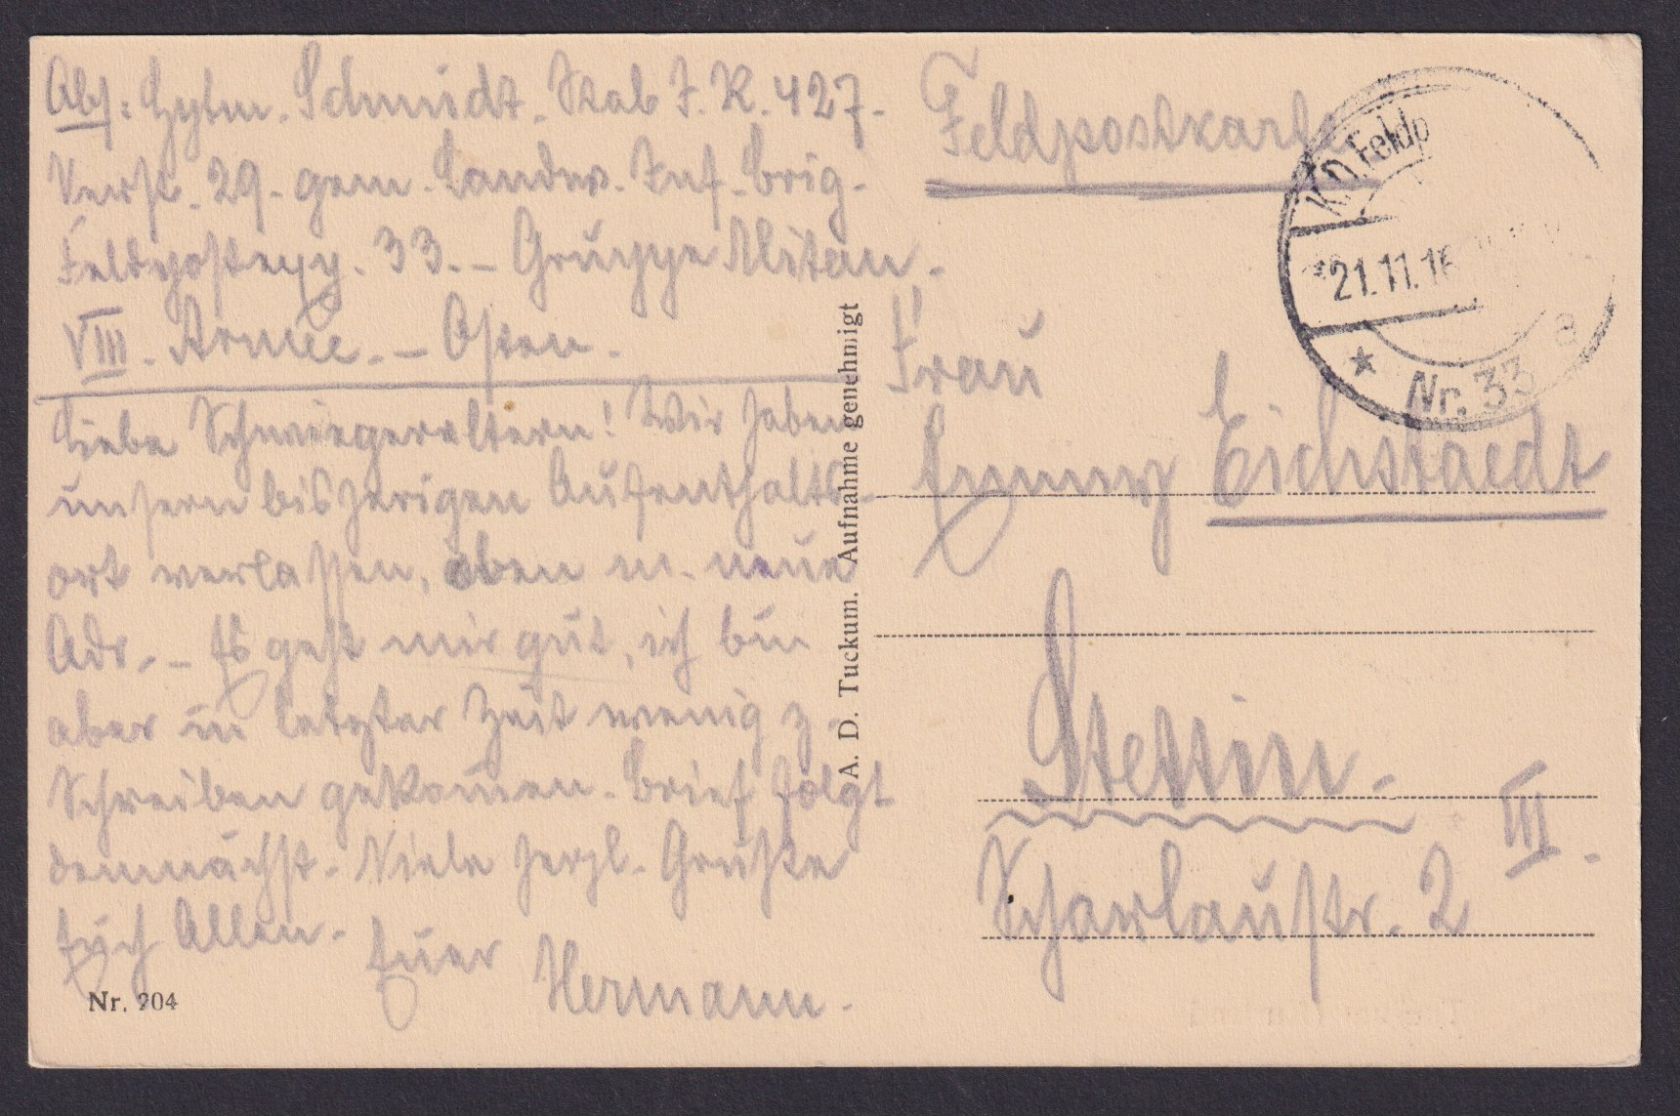 Abs: Hptm. Schmidt. Stab I. R. 427.
Verst. 29. gem. Landw. Inf. Brig.
Feldpostexp. 33. – Gruppe Mitau.
VIII. Armee. – Osten.
Liebe Schwiegereltern! Wir haben
unsern bisherigen Aufenthalts-
ort verlassen, oben m. neue
Adr. – Es geht mir gut, ich bin
aber in letzter Zeit wenig z.
Schreiben gekom̄en. Brief folgt
demnächst. Viele herzl. Grüße
Euch Allen. Euer Hermann.
Nr. 204
A. D. Tuckum. Aufnahme genehmigt
Feldpostkarte
K.D. Feldp
*21.11.16
* Nr. 33 a
Frau
Eichstaedt
Stettin.
III.
Scharlaustr. 2